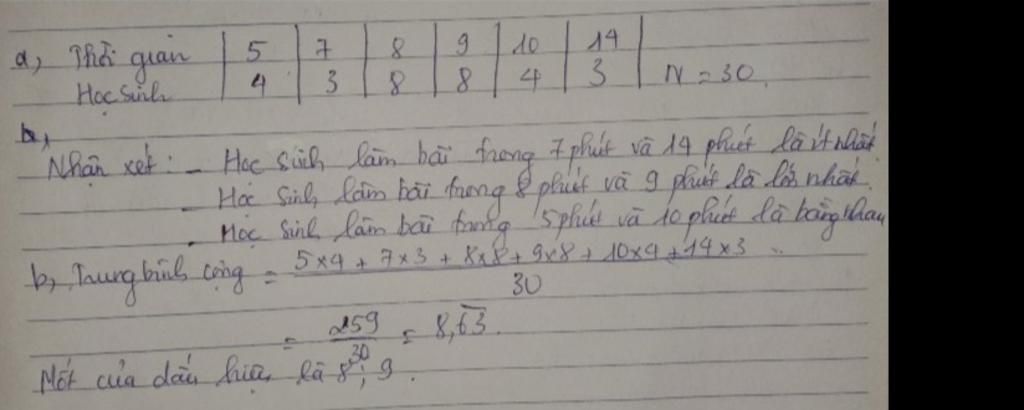 a, Thời gian | 5 | 7 | 8 | 9 | 10 | 14 |
Học sinh | 4 | 3 | 8 | 8 | 4 | 3 | N = 30.
b,
Nhận xét: - Học sinh làm bài trong 7 phút và 14 phút là ít nhất
- Học sinh làm bài trong 8 phút và 9 phút là lớn nhất.
- Học sinh làm bài trong 5 phút và 10 phút là bằng nhau
b, Trung bình cộng = 5×4 + 7×3 + 8×8 + 9×8 + 10×4 + 14×3
30
= 259/30 = 8,63.
Mốt của dấu hiệu là 8; 9.